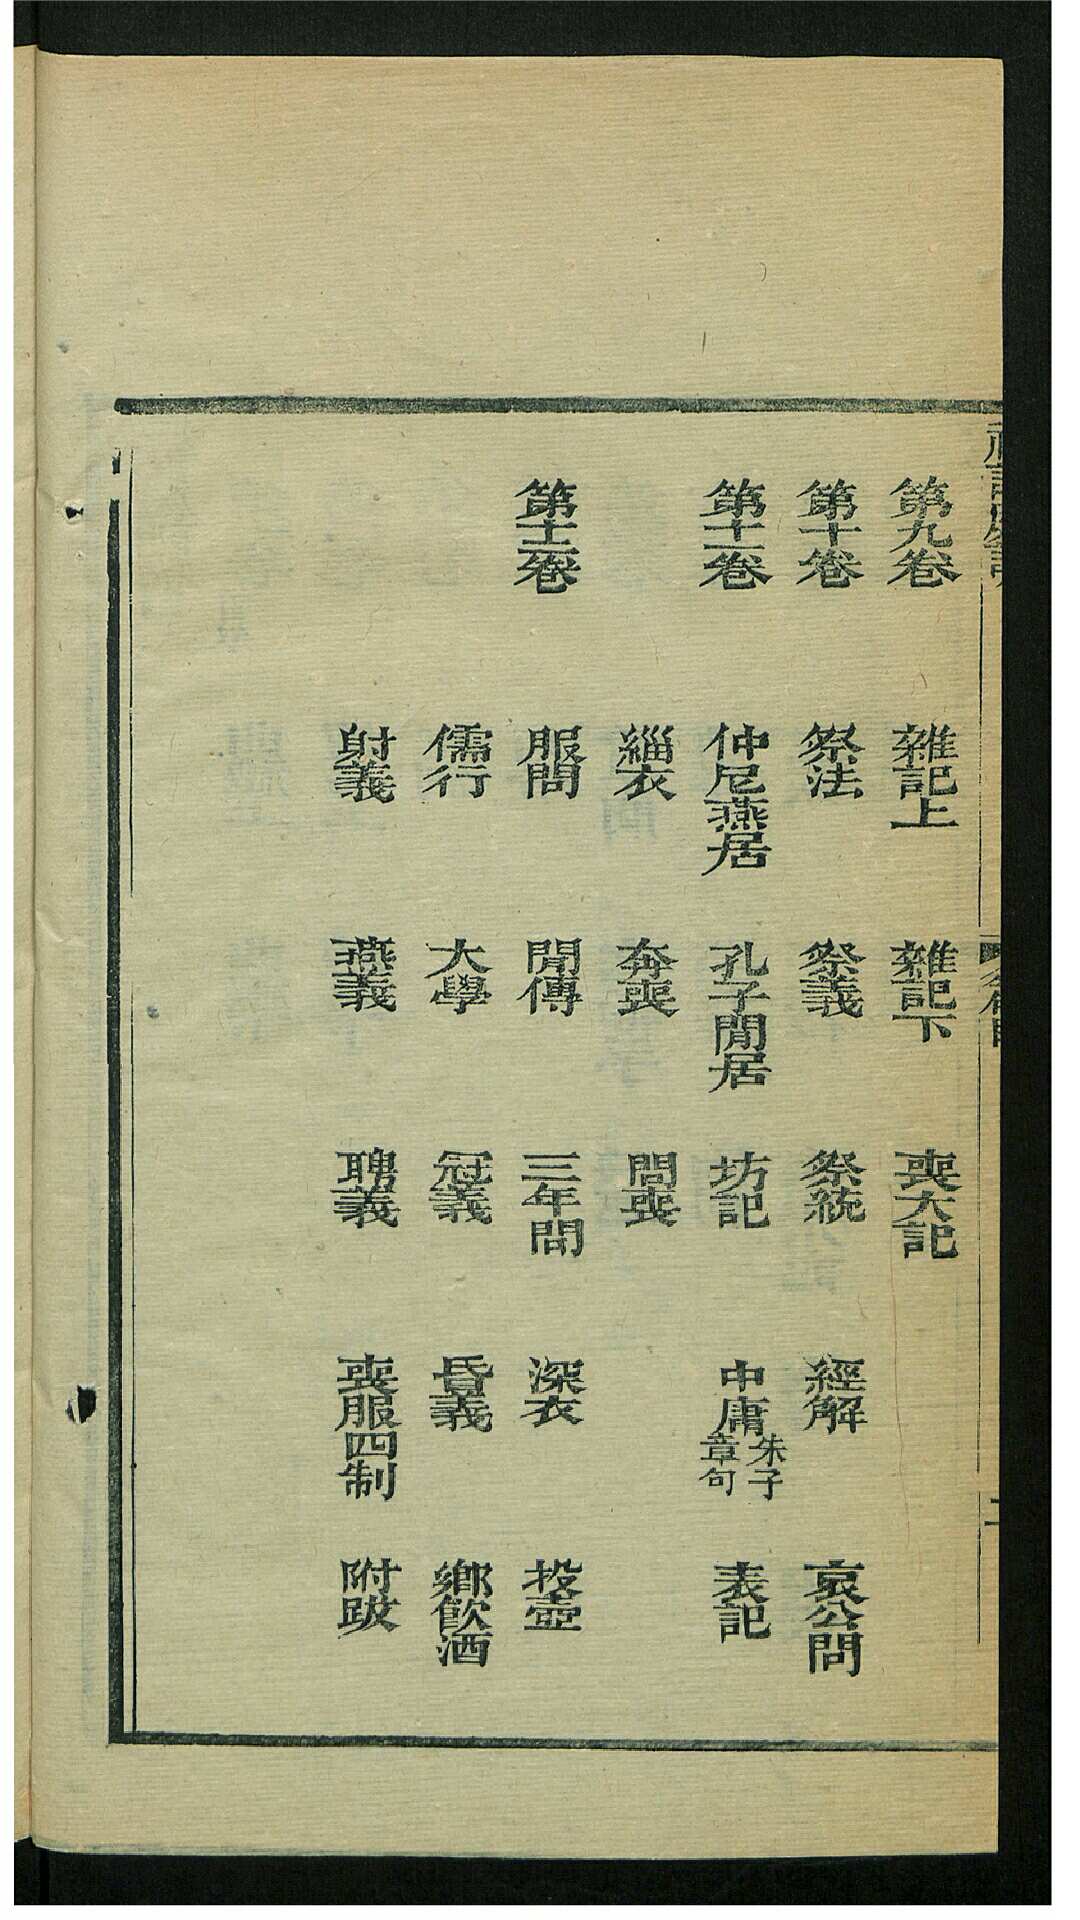 第九卷　雜記上　雜記下　喪大記
第十卷　祭法　祭義　祭統　經解　哀公問
第十一卷　仲尼燕居　孔子閒居　坊記　中庸朱子章句　表記
緇衣　奔喪　問喪
第十二卷　服問　閒傳　三年問　深衣　投壺
儒行　大學　冠義　昏義　鄉飲酒
射義　燕義　聘義　喪服四制　附跋